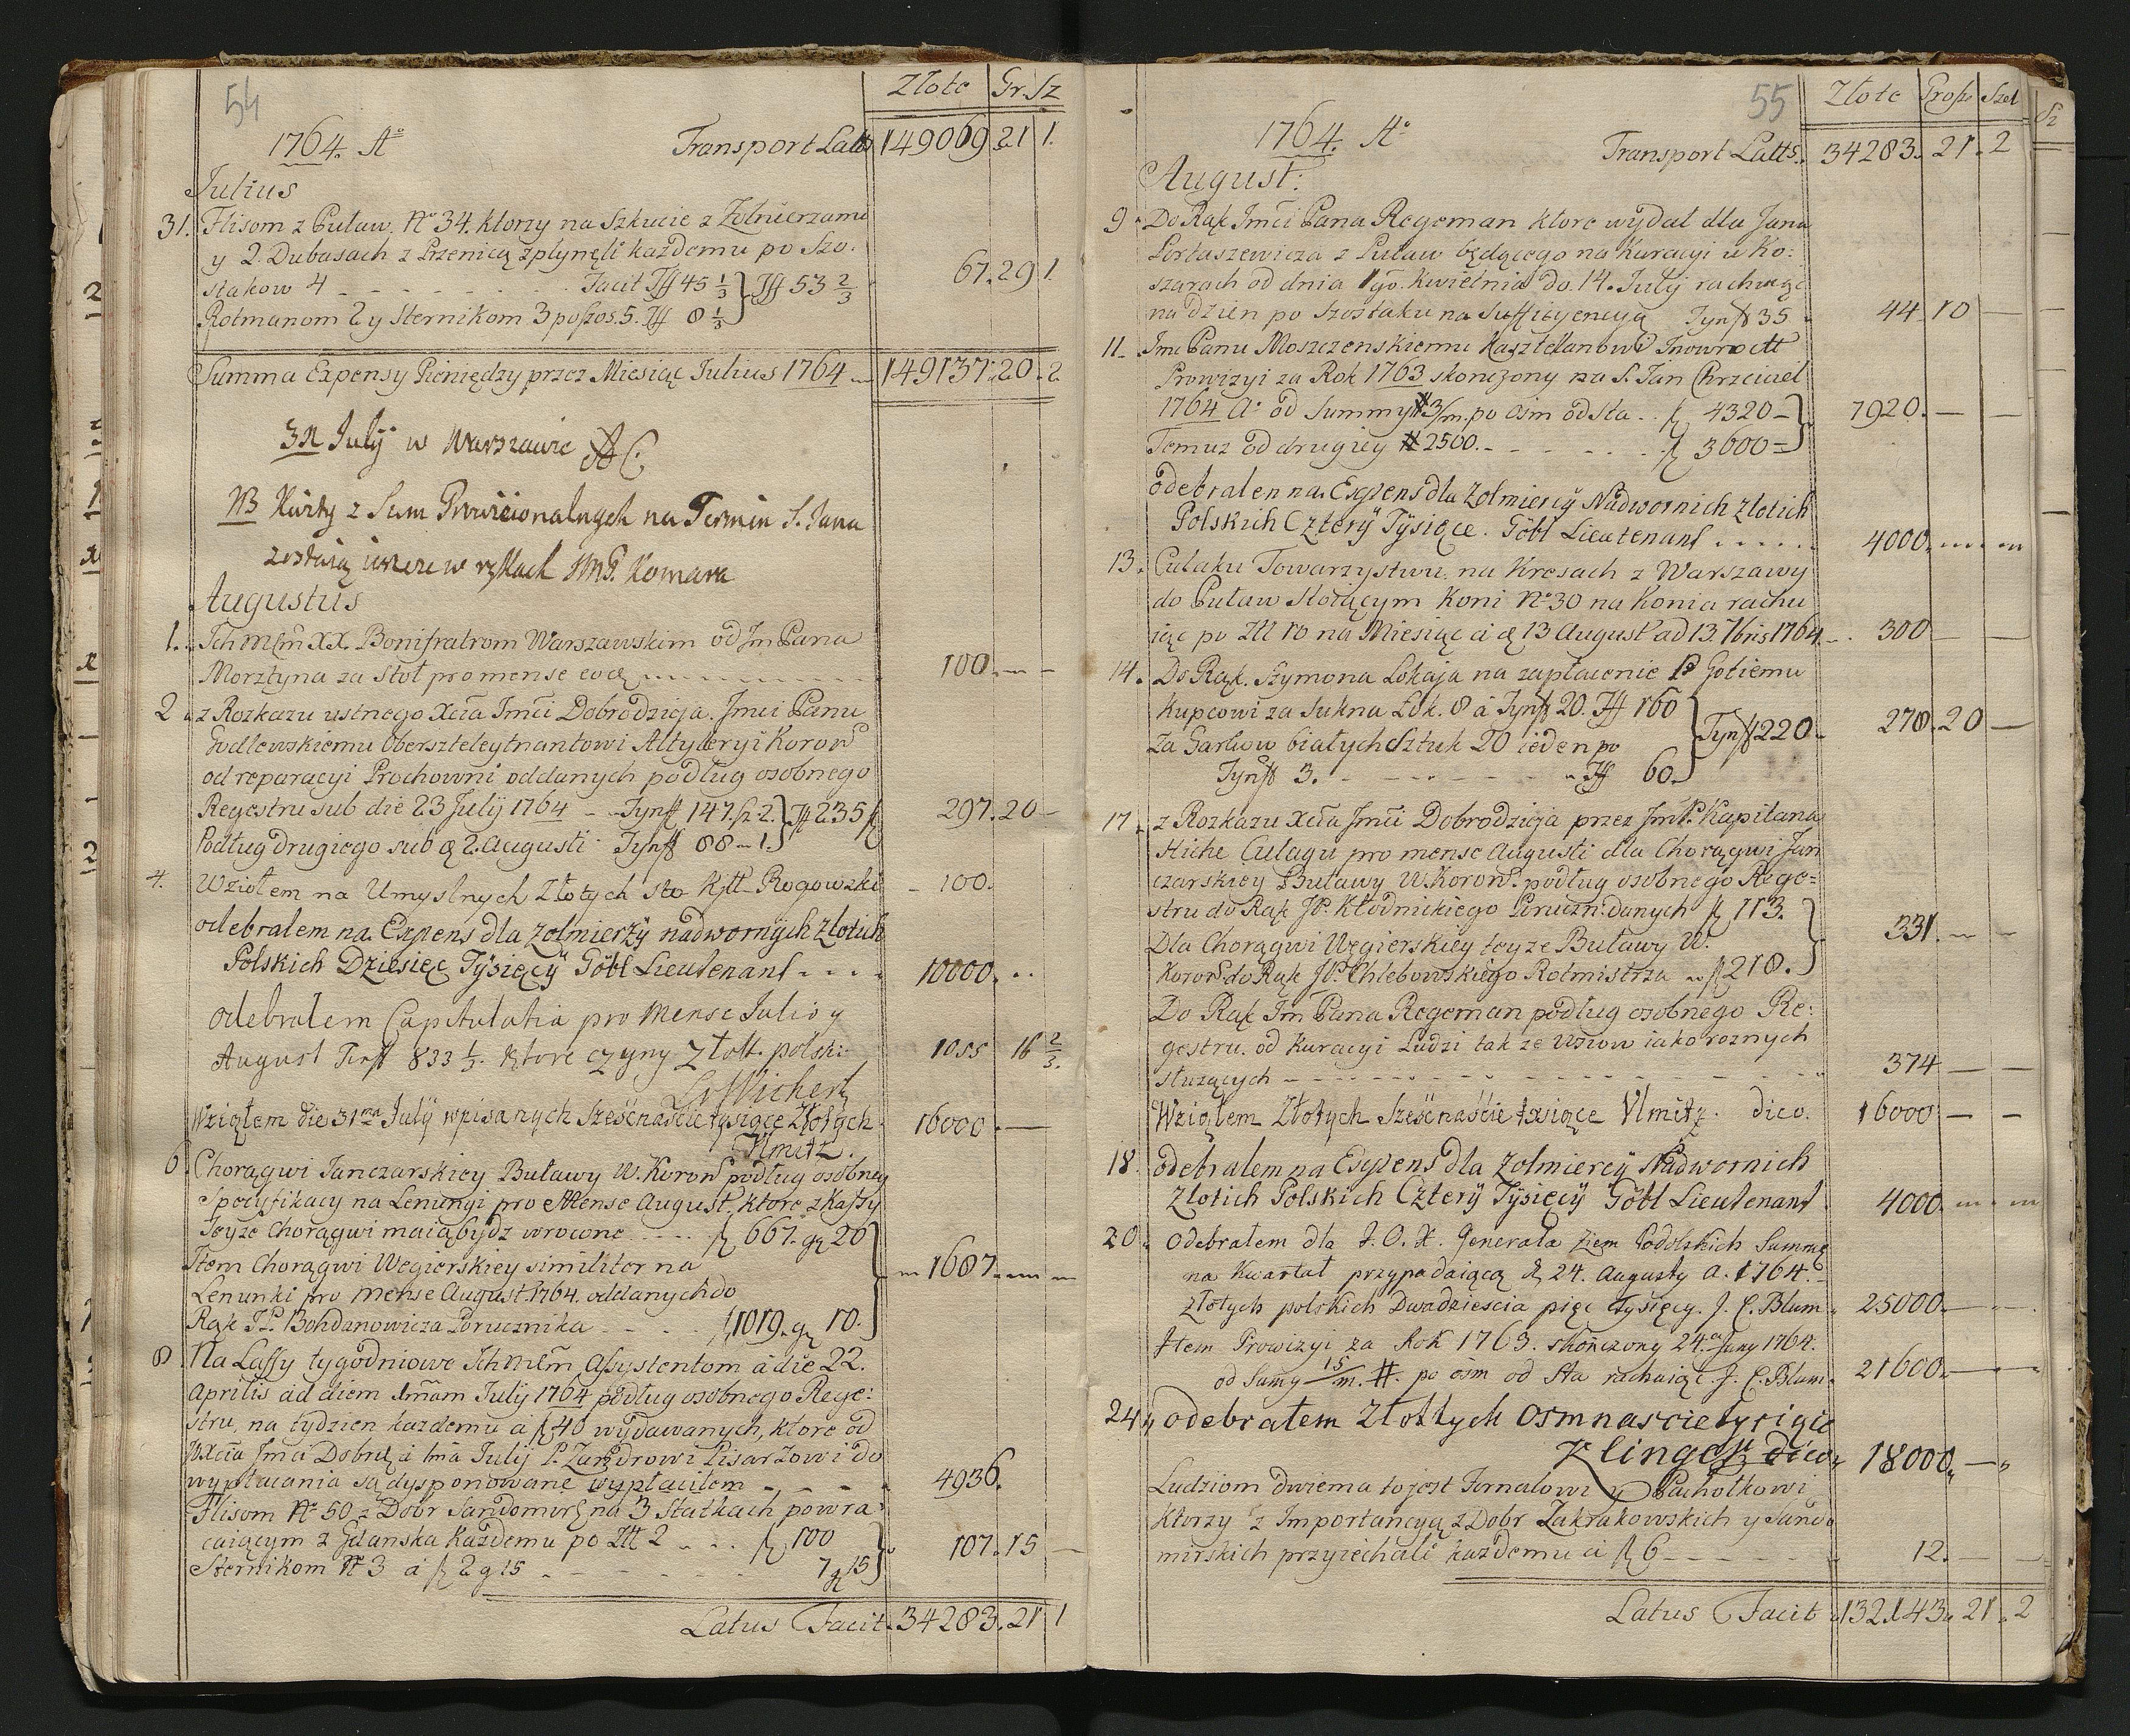 54
Złote Gr. Sz
1764. Aº Transport Latts 149069. 21 1.
Julius
31. Flisom z Puław. Nº 34. ktorzy na Szkucie z Zołnierzami
y 2. Dubasach z Przenicą zpłynęli każdemu po Szo:
stakow 4 - - - Facit Tff 45 1/3 } Tff 53 2/3 67. 29 1.
Rotmanom 2 y Sternikom 3 po szos. 5. Tff 8 1/3
Summa Expensy Pieniędzy przez Miesiąc Julius 1764 149137. 20. 2.
31 July w Warszawie AC
NB Kwity z Sum Prowizionalnych na Termin S. Jana
zostaią ieszcze w rękach JMP. Komara
Augustus
1. Ich Mcm XX. Bonifratrom Warszawskim od Jm Pana
Morztyna za Stoł pro mense eodę 100. - -
2 z Rozkazu ustnego Xcia Jmci Dobrodzieja. Jmci Panu
Godlewskiemu Oberszteleytnantowi Altyleryi Koronº
od reparacyi Prochowni oddanych podług osobnego
Regestru sub die 23 July 1764 - - Tynff 147. sz. 2. } Tff 235 297. 20 -
Podług drugiego sub d 2. Augusti Tynff 88 - 1.
4. Wziołem na Umyslnych Złotych sto Rogowzki - 100.
odebralem na. Expens dla zolmierzÿ nadwornÿch zlotich
Polskich Dziesięc Tÿsięcÿ Göbl Lieutenant . . . . 10000. . .
Odebralem Capitulatia pro Mense Julio y
August Tinff 833 1/3. ktore czyny Złott. polski: 1055 16 2/3.
Wichert
Wziąłem die 31ma Julÿ wpisanych Sześćnaście tysięcę Złotych 16000. -
Ulmitz.
6. Chorągwi Janczarskiey Buławy W. Koronº podług osobney
Specyfikacy na Lenungi pro Mense August, ktore z Kassy
teyze Chorągwi maią bydz wrocone . . . . f 667. gr 20
Item Chorągwi Węgierskiey similiter na 1687. - -
Lenunki pro Mense August. 1764. oddanych do
Rąk JP. Bohdanowicza Porucznika - - - f 1019. gr 10.
8. Na Lassy tygodniowe Ich Mcm Assystentom a die 22.
Aprilis ad diem 1mam July 1764 podług osobnego Rege:
stru, na tydzien kazdemu a f 40 wydawanych, ktore od
WXcia Jmci Dobrdz a 1ma July P. Zandrowi Pisarzowi do
wypłacania są dysponowane wypłaciłem - - - - 4936.
Flisom Nº 50 z Dobr Sandomirs na 3 Statkach powra:
caiącym z Gdanska każdemu po Zł 2 . . . f 100 107. 15 -
Sternikom Nº 3 a f 2 g 15 - - - - - 7 gr 15
Latus Facit. 34283. 21 1
55
Złote Grosz Szel
1764. Aº Transport Latts. 34283. 21. 2
August:
9. Do Rąk Jmci Pana Regeman ktore wydał dla Jana
Portaszewicza z Puław będącego na Kuracyi u Ko:
szarach od dnia 1go. Kwietnia do. 14. July rachuiąc
na dzien po Szostaku na Suffitÿencyą Tynff 35 44 10 -
11. Jmci Panu Moszczenskiemu Kasztelanowi Inowrocłł
Prowizyi za Rok 1763 skonczony na S. Jan Chrzciciel
1764 Aº od Summy # 3/m. po osm od sta . . f 4320 - 7920. - -
Temuz od drugiey # 2500. - - - - - f 3600 -
odebralen na. Expens dla zolmiercÿ Nadwornich zlotich
Polskich Czterÿ Tÿsięce. Göbl Lieutenant . . . . . 4000. - -
13. Culaku Towarzystwu. na Kresach z Warszawy
do Puław stoiącym Koni Nº 30 na Konia rachu
iąc po Zll 10 na Miesiąc a d 13 August ad 13. 7bris 1764 - 300 - -
14. Do Rąk. Szymona Lokaja na zapłacenie P Gotiemu
Kupcowi za Sukna Łok. 8 a Tynff 20. Tff 160
za Garsow białych Sztuk 20 ieden po Tynff 220 - 278. 20 -
Tynff 3. - - - - - - Tff 60.
17. z Rozkazu Xcia Jmci Dobrodzieja przez JmP. Kapitana
Hiche Culagu pro mense Augusti dla Chorągwi Jan
czarskiey Buławy W. Koronº. podług osobnego Rege=
stru do Rąk JP. Kłodnickiego Poruczn: danych f 113.
Dla Chorągwi Węgierskiey teyze Buławy W. 331. - -
Koronº do Rąk JP. Chlebowskiego Rotmistrza f 218.
Do Rąk Jm Pana Regeman podług osobnego Re:
gestru. od Kuracyi Ludzi tak ze wsiow iako roznych
służących - - - - - - - - 374 - -
Wziąłem Złotych Sześćnaście tysięce Ulmitz. dico. 16000 - -
18. odebralem na Expens dla zolmiercÿ Nadwornich
zlotich Polskich Czterÿ Tÿsięcÿ Göbl Lieutenant. 4000. - -
20. odebrałem dla J. O. X. Generała Ziem Podolskich Summę
na Kwartał przypadaiącą d 24. Augusty A. 1764. -
złotych polskich Dwadziescia pięc tysięcy. J. C. Blum. 25000. - -
Item Prowizyi za Rok 1763. skończony 24.ta Juny 1764.
od Sumy 15/m. #. po ośm od Sta rachuiąc. J. C. Blum. 21600. - -
24 odebratem Złottych osmnascie tysięcie
Klingoff dico. 18000. -
Ludziom dwiema to jest Fornalowi y Pachołkowi
Ktorzy z Importancyą z Dobr Zakrakowskich y Sando
mirskich przyiechali każdemu a f 6 - - - - - 12. - -
Latus Facit 132143. 21. 2